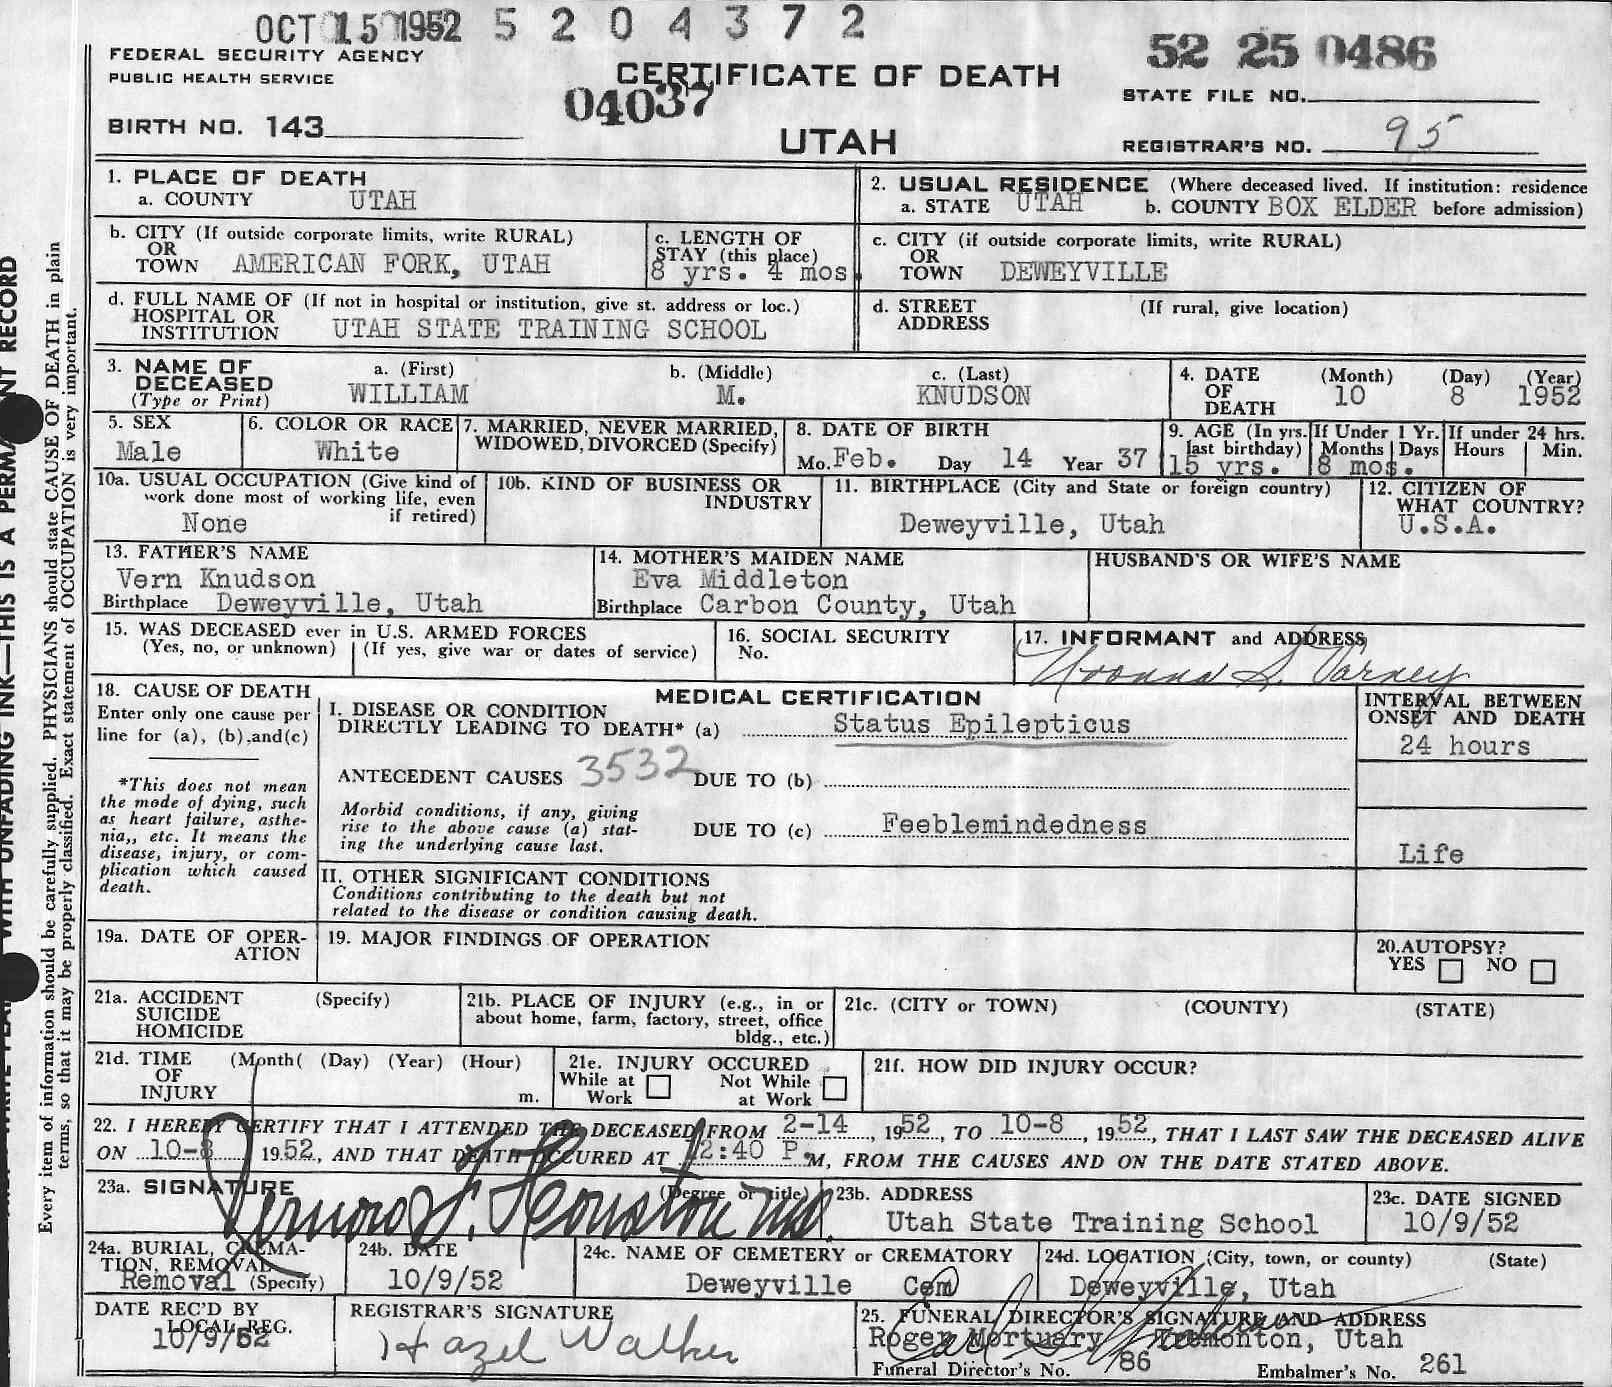 OCT 15 1952 5 2 0 4 3 7 2
FEDERAL SECURITY AGENCY
PUBLIC HEALTH SERVICE
CERTIFICATE OF DEATH
UTAH
04037
52 25 0486
STATE FILE NO.
BIRTH NO. 143
REGISTRAR'S NO. 95
1. PLACE OF DEATH
a. COUNTY UTAH
2. USUAL RESIDENCE (Where deceased lived. If institution: residence
a. STATE UTAH b. COUNTY BOX ELDER before admission)
b. CITY (If outside corporate limits, write RURAL)
OR
TOWN AMERICAN FORK, UTAH
c. LENGTH OF
STAY (this place)
8 yrs. 4 mos.
c. CITY (if outside corporate limits, write RURAL)
OR
TOWN DEWEYVILLE
d. FULL NAME OF (If not in hospital or institution, give st. address or loc.)
HOSPITAL OR
INSTITUTION UTAH STATE TRAINING SCHOOL
d. STREET (If rural, give location)
ADDRESS
3. NAME OF
DECEASED
(Type or Print)
a. (First) b. (Middle) c. (Last)
WILLIAM M. KNUDSON
4. DATE
OF
DEATH
(Month) (Day) (Year)
10 8 1952
5. SEX
Male
6. COLOR OR RACE
White
7. MARRIED, NEVER MARRIED,
WIDOWED, DIVORCED (Specify)
8. DATE OF BIRTH
Mo. Feb. Day 14 Year 37
9. AGE (In yrs.
last birthday)
15 yrs.
If Under 1 Yr.
Months Days
8 mos.
If under 24 hrs.
Hours Min.
10a. USUAL OCCUPATION (Give kind of
work done most of working life, even
if retired)
None
10b. KIND OF BUSINESS OR
INDUSTRY
11. BIRTHPLACE (City and State or foreign country)
Deweyville, Utah
12. CITIZEN OF
WHAT COUNTRY?
U.S.A.
13. FATHER'S NAME
Vern Knudson
Birthplace Deweyville, Utah
14. MOTHER'S MAIDEN NAME
Eva Middleton
Birthplace Carbon County, Utah
HUSBAND'S OR WIFE'S NAME
15. WAS DECEASED ever in U.S. ARMED FORCES
(Yes, no, or unknown) (If yes, give war or dates of service)
16. SOCIAL SECURITY
No.
17. INFORMANT and ADDRESS
S. Varney
18. CAUSE OF DEATH
Enter only one cause per
line for (a), (b),and(c)
*This does not mean
the mode of dying, such
as heart failure, asthe-
nia,, etc. It means the
disease, injury, or com-
plication which caused
death.
MEDICAL CERTIFICATION
I. DISEASE OR CONDITION
DIRECTLY LEADING TO DEATH* (a) Status Epilepticus
ANTECEDENT CAUSES 3532 DUE TO (b)
Morbid conditions, if any, giving
rise to the above cause (a) stat-
ing the underlying cause last.
DUE TO (c) Feeblemindedness
INTERVAL BETWEEN
ONSET AND DEATH
24 hours
Life
II. OTHER SIGNIFICANT CONDITIONS
Conditions contributing to the death but not
related to the disease or condition causing death.
19a. DATE OF OPER-
ATION
19. MAJOR FINDINGS OF OPERATION
20. AUTOPSY?
YES NO
21a. ACCIDENT (Specify)
SUICIDE
HOMICIDE
21b. PLACE OF INJURY (e.g., in or
about home, farm, factory, street, office
bldg., etc.)
21c. (CITY or TOWN) (COUNTY) (STATE)
21d. TIME (Month( (Day) (Year) (Hour)
OF
INJURY m.
21e. INJURY OCCURED
While at Work Not While at Work
21f. HOW DID INJURY OCCUR?
22. I HEREBY CERTIFY THAT I ATTENDED THE DECEASED FROM 2-14, 1952, TO 10-8, 1952, THAT I LAST SAW THE DECEASED ALIVE
ON 10-8 1952, AND THAT DEATH OCCURED AT 12:40 P.M, FROM THE CAUSES AND ON THE DATE STATED ABOVE.
23a. SIGNATURE (Degree or title)
Vernon F. Houston MD.
23b. ADDRESS
Utah State Training School
23c. DATE SIGNED
10/9/52
24a. BURIAL, CREMA-
TION, REMOVAL
Removal (Specify)
24b. DATE
10/9/52
24c. NAME OF CEMETERY or CREMATORY
Deweyville Cem
24d. LOCATION (City, town, or county) (State)
Deweyville, Utah
DATE REC'D BY
LOCAL REG.
10/9/52
REGISTRAR'S SIGNATURE
Hazel Walker
25. FUNERAL DIRECTOR'S SIGNATURE AND ADDRESS
Roger Mortuary Tremonton, Utah
Funeral Director's No. 86 Embalmer's No. 261
Every item of information should be carefully supplied. PHYSICIANS should state CAUSE OF DEATH in plain
terms, so that it may be properly classified. Exact statement of OCCUPATION is very important.
WITH UNFADING INK—THIS IS A PERMA NT RECORD